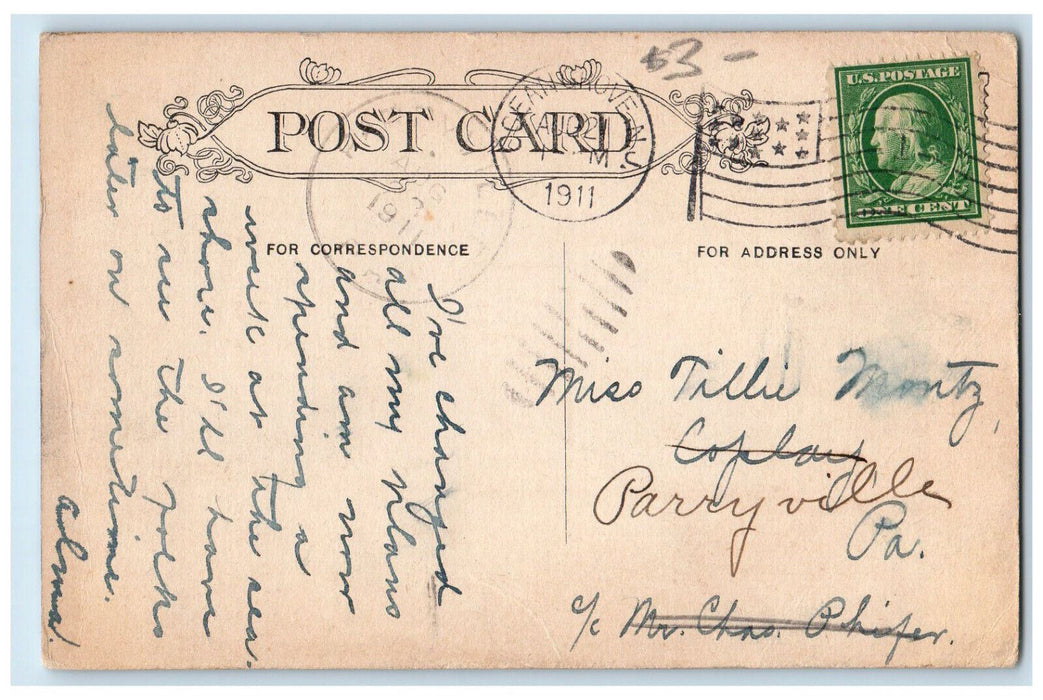 53 -
POST CARD
OCEAN GROVE N.J.
AUG 21
M
1911
U.S. POSTAGE
ONE CENT
1911
FOR CORRESPONDENCE
FOR ADDRESS ONLY
I've changed
all my plans
and am now
spending a
week at the sea.
shore. I'll have
to see the folks
later on sometime.
Alma.
Miss Tillie Montz,
Coplay
Parryville
Pa.
c/o Mr. Chas. Phifer.